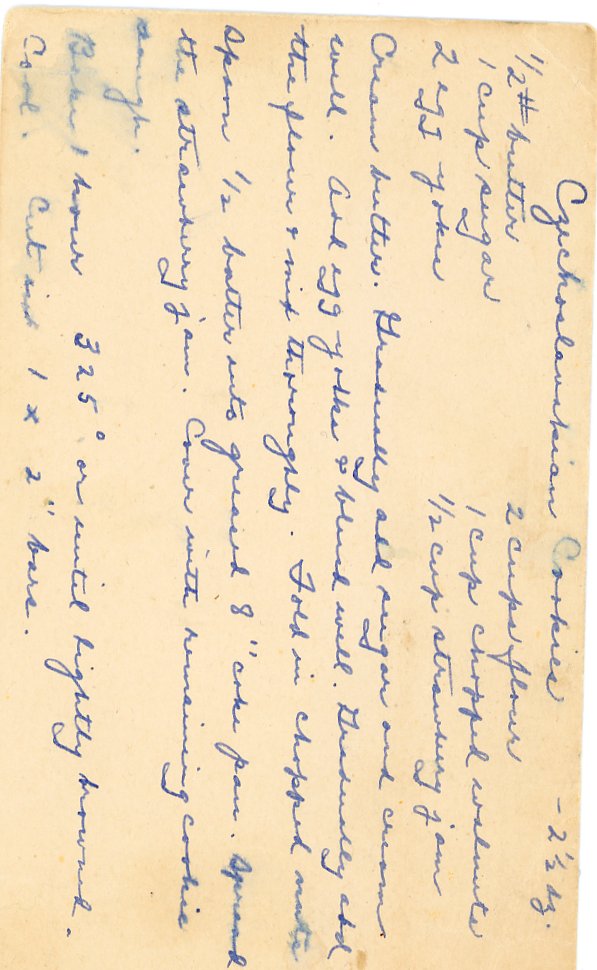 Czechoslavakian Cookies - 2 1/2 dz.
1/2 # butter 2 cups flour
1 cup sugar 1 cup chopped walnuts
2 egg yokes 1/2 cup strawberry jam
Cream butter. Gradually add sugar and cream
well. Add egg yokes & blend well. Gradually add
the flour & mix thoroughly. Fold in chopped nuts
Spoon 1/2 batter into greased 8" cake pan. Spread
the strawberry jam. Cover with remaining cookie
dough.
Bake 1 hour 325° or until lightly browned.
Cool. Cut into 1 x 2" bars.